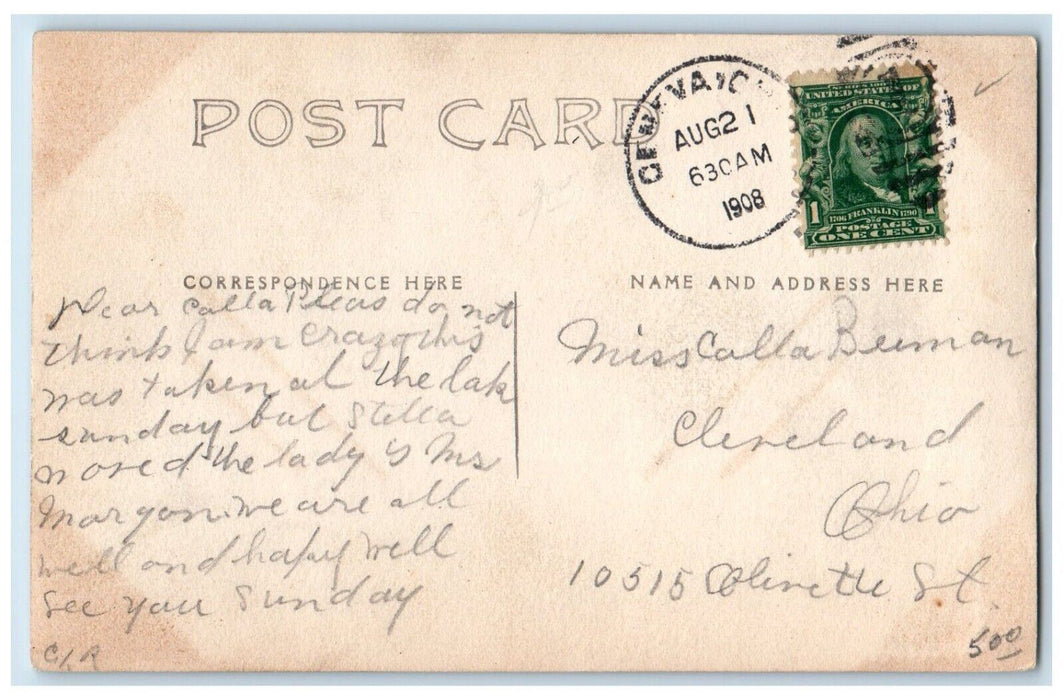 POST CARD
GENEVA, O
AUG 21
630AM
1908
SERIES 1902
UNITED STATES OF
AMERICA
1
1706 FRANKLIN 1790
POSTAGE
ONE CENT
CORRESPONDENCE HERE
NAME AND ADDRESS HERE
Dear Calla Pleas do not
think I am Crazy this
was taken at the lak
sunday but Stella
moved the lady is Mrs
Morgan. we are all
well and hapy well
see you Sunday
Miss Calla Beeman
Cleveland
Ohio
10515 Olivette St.
C/R
5.00